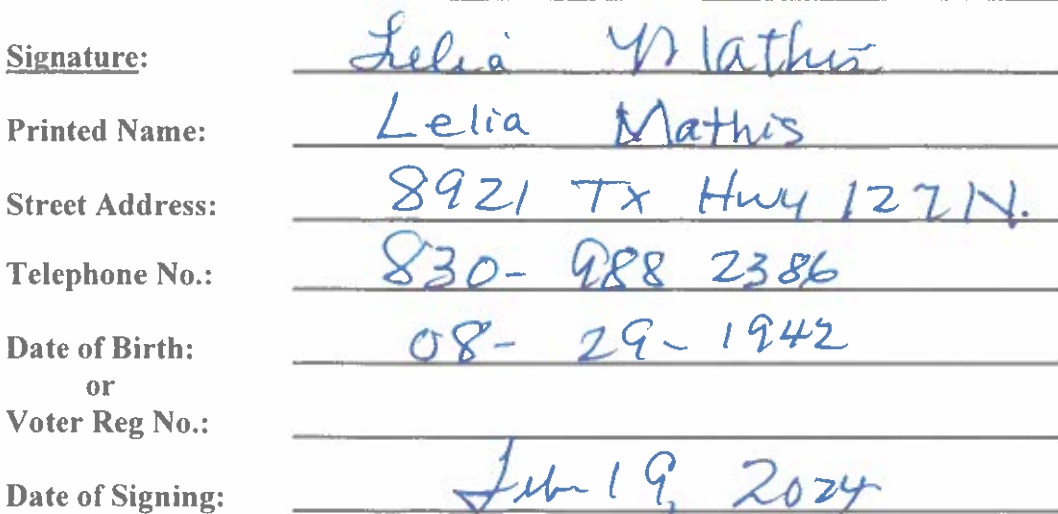 Signature: Lelia Mathis
Printed Name: Lelia Mathis
Street Address: 8921 Tx Hwy 127 N.
Telephone No.: 830- 988 2386
Date of Birth: 08- 29- 1942
or
Voter Reg No.:
Date of Signing: Feb 19, 2024